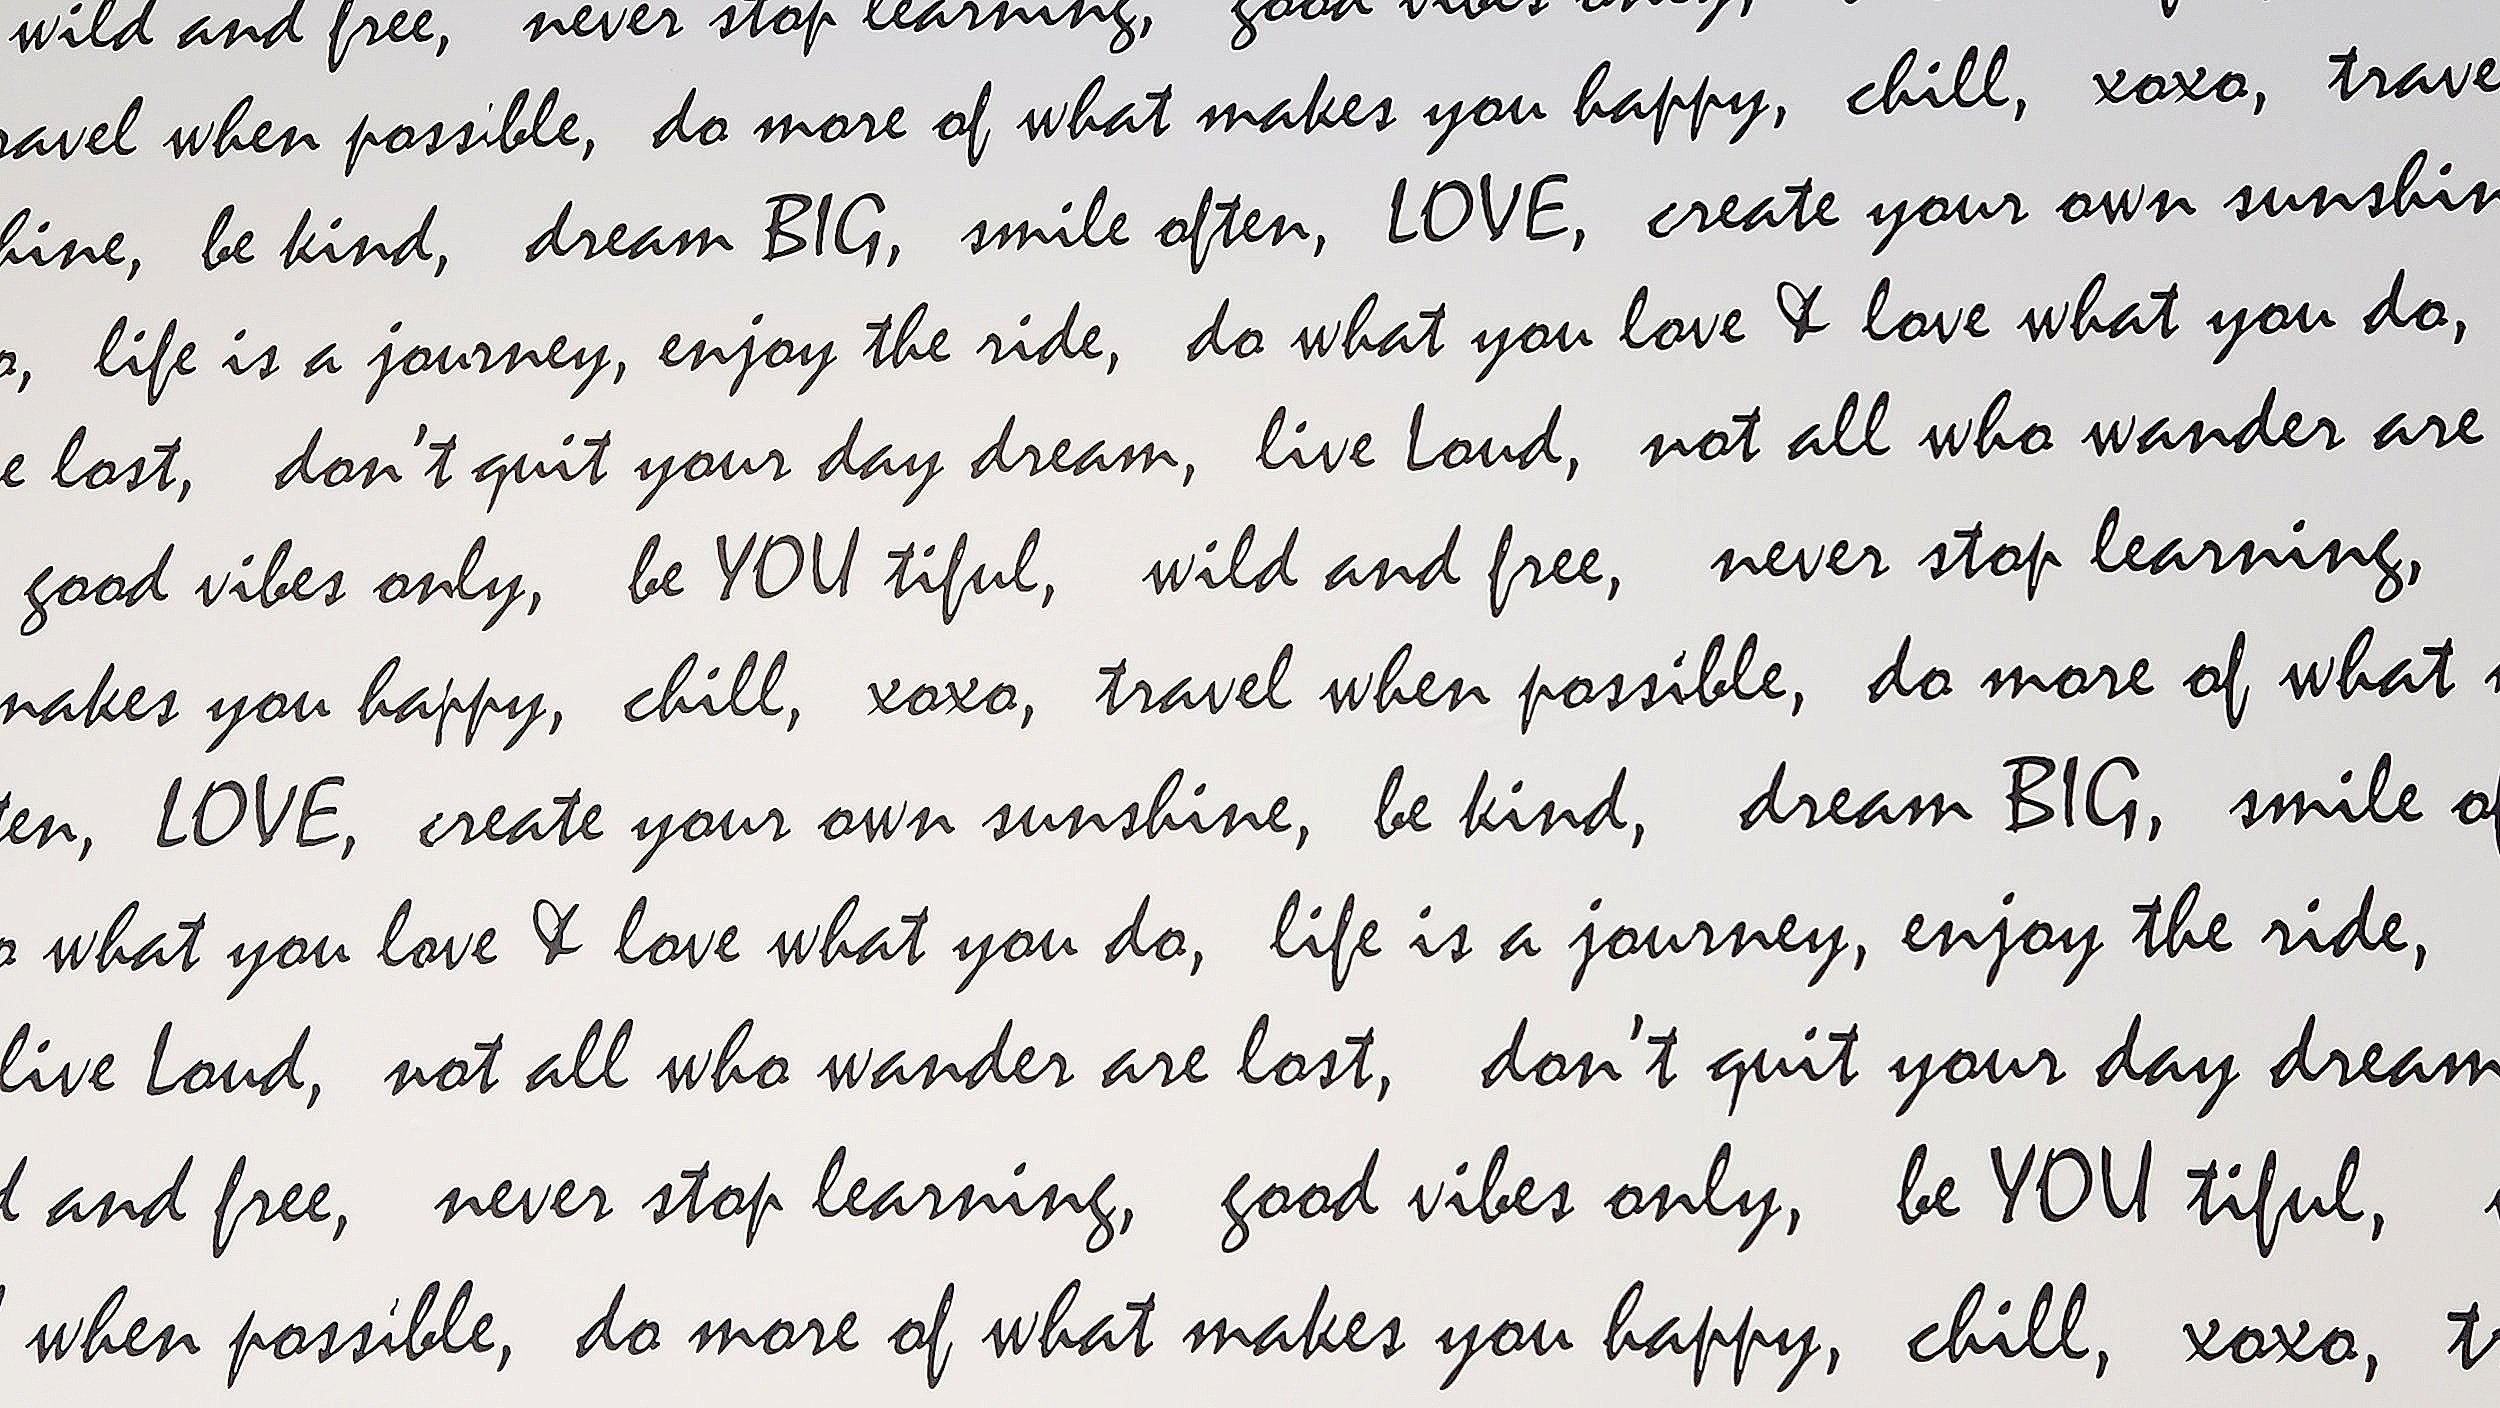 wild and free, never stop learning, good vibes only,
ravel when possible, do more of what makes you happy, chill, xoxo, trave
hine, be kind, dream BIG, smile often, LOVE, create your own sunshin
o, life is a journey, enjoy the ride, do what you love & love what you do,
e lost, don't quit your day dream, live Loud, not all who wander are
good vibes only, be YOU tiful, wild and free, never stop learning,
makes you happy, chill, xoxo, travel when possible, do more of what
ten, LOVE, create your own sunshine, be kind, dream BIG, smile of
o what you love & love what you do, life is a journey, enjoy the ride,
live Loud, not all who wander are lost, don't quit your day dream
d and free, never stop learning, good vibes only, be YOU tiful,
when possible, do more of what makes you happy, chill, xoxo, tr